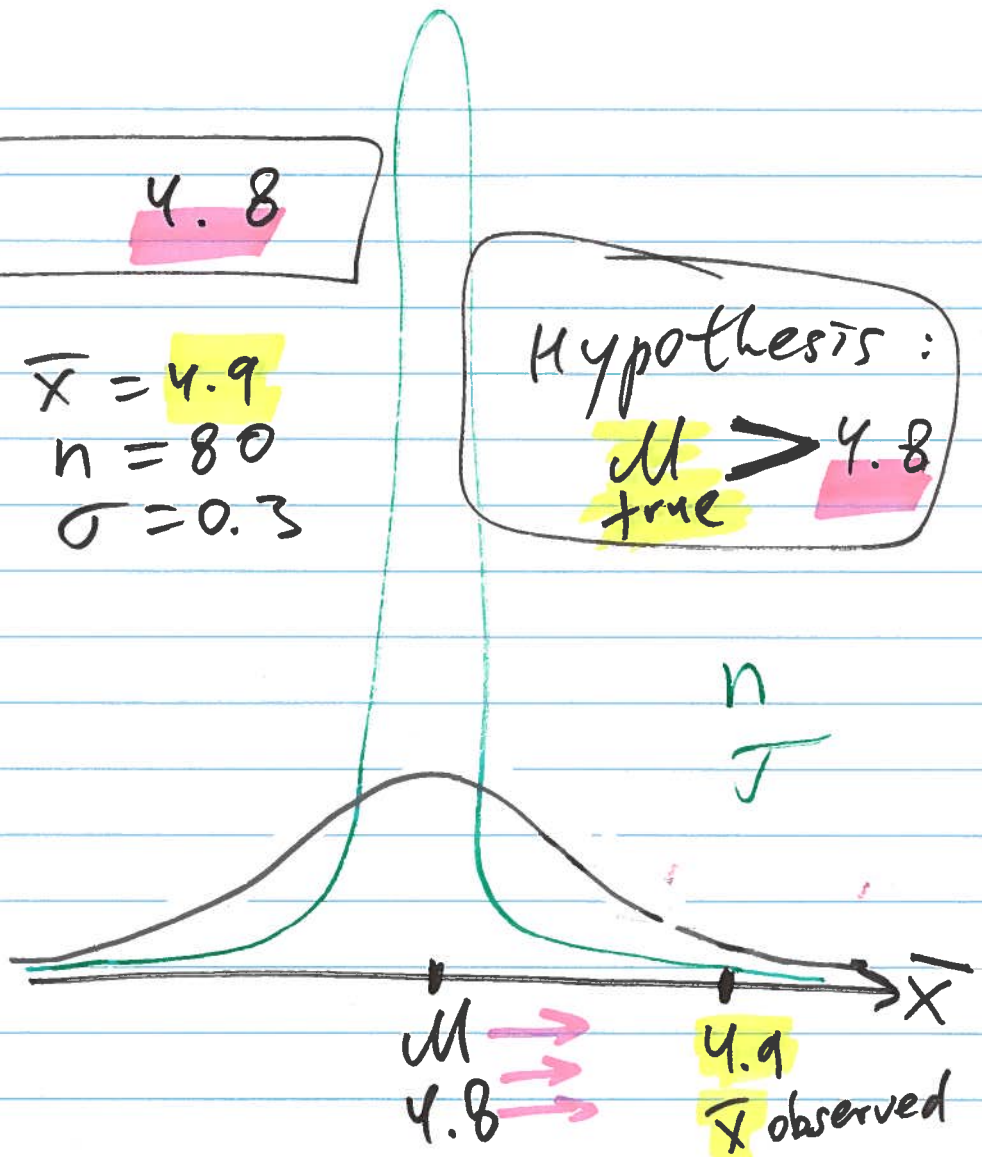 4.8
x̄ = 4.9
n = 80
σ = 0.3
Hypothesis :
μ > 4.8
true
n
σ
x̄
μ
4.8
4.9
x̄ observed